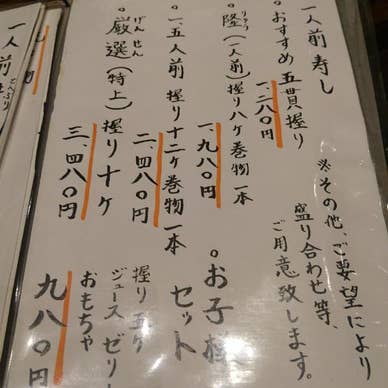 一人前寿し
※その他、ご要望により
盛り合わせ等、
ご用意致します。
。おすすめ五貫握り
一、二八〇円
。隆(一人前)握り八ケ巻物一本
りゅう
一、九八〇円
。一、五人前 握り十二ケ巻物一本
二、四八〇円
。厳選(特上)握り十ケ
げんせん
三、四八〇円
。お子様
セット
握り五ケ
ジュースゼリー
おもちゃ
九八〇円
一人前
どんぶり